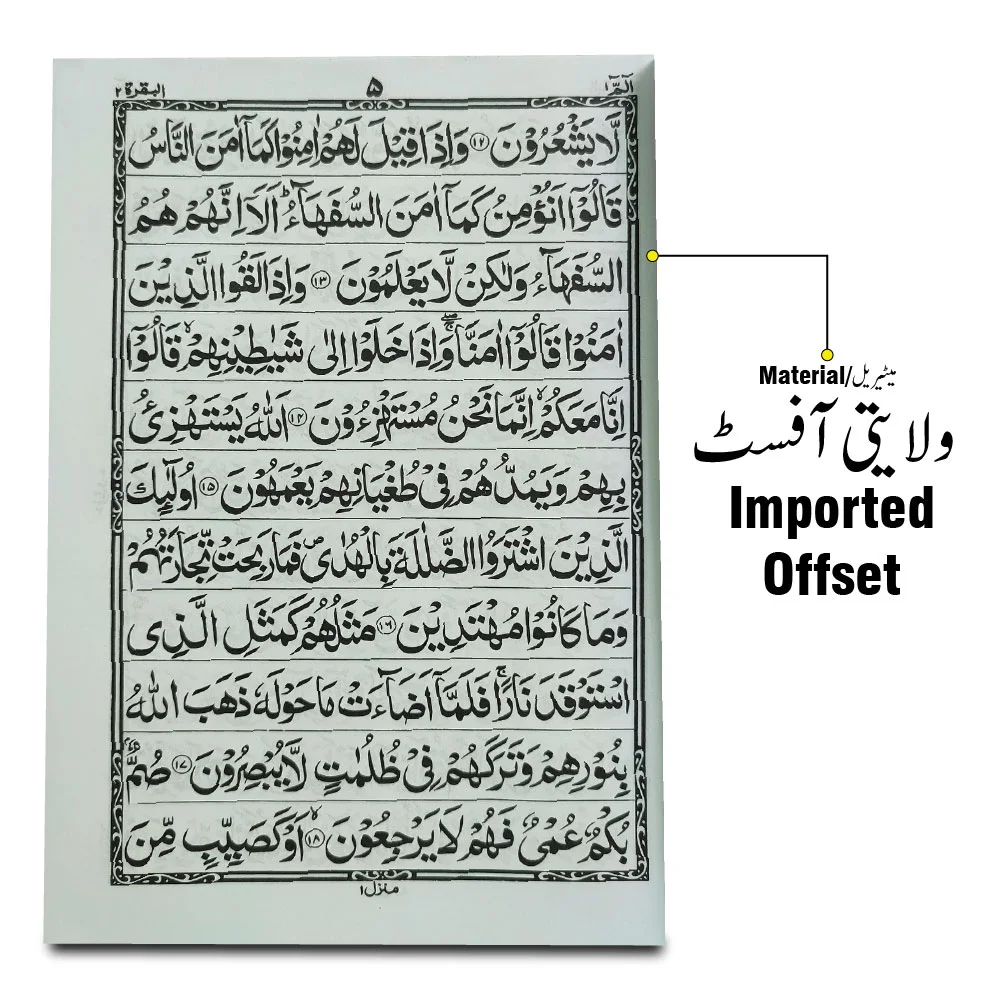 الٓمّٓ ١ ۵ البقرة ٢
لَّا یَشْعُرُوْنَ ﴿١٢﴾ وَاِذَا قِیْلَ لَهُمْ اٰمِنُوْا كَمَاۤ اٰمَنَ النَّاسُ
قَالُوْۤا اَنُؤْمِنُ كَمَاۤ اٰمَنَ السُّفَهَآءُ ؕ اَلَاۤ اِنَّهُمْ هُمُ
السُّفَهَآءُ وَلٰكِنْ لَّا یَعْلَمُوْنَ ﴿١٣﴾ وَاِذَا لَقُوا الَّذِیْنَ
اٰمَنُوْا قَالُوْۤا اٰمَنَّا ۖۚ وَاِذَا خَلَوْا اِلٰی شَیٰطِیْنِهِمْ ۙ قَالُوْۤا
اِنَّا مَعَكُمْ ۙ اِنَّمَا نَحْنُ مُسْتَهْزِءُوْنَ ﴿١٤﴾ اَللّٰهُ یَسْتَهْزِئُ
بِهِمْ وَیَمُدُّهُمْ فِیْ طُغْیَانِهِمْ یَعْمَهُوْنَ ﴿١٥﴾ اُولٰٓئِكَ
الَّذِیْنَ اشْتَرَوُا الضَّلٰلَةَ بِالْهُدٰی ۪ فَمَا رَبِحَتْ تِّجَارَتُهُمْ
وَمَا كَانُوْا مُهْتَدِیْنَ ﴿١٦﴾ مَثَلُهُمْ كَمَثَلِ الَّذِی
اسْتَوْقَدَ نَارًا ۚ فَلَمَّاۤ اَضَآءَتْ مَا حَوْلَهٗ ذَهَبَ اللّٰهُ
بِنُوْرِهِمْ وَتَرَكَهُمْ فِیْ ظُلُمٰتٍ لَّا یُبْصِرُوْنَ ﴿١٧﴾ صُمٌّۢ
بُكْمٌ عُمْیٌ فَهُمْ لَا یَرْجِعُوْنَ ﴿١٨﴾ ۙ اَوْ كَصَیِّبٍ مِّنَ
منزل ١
Material/میٹیریل
ولایتی آفسٹ
Imported
Offset